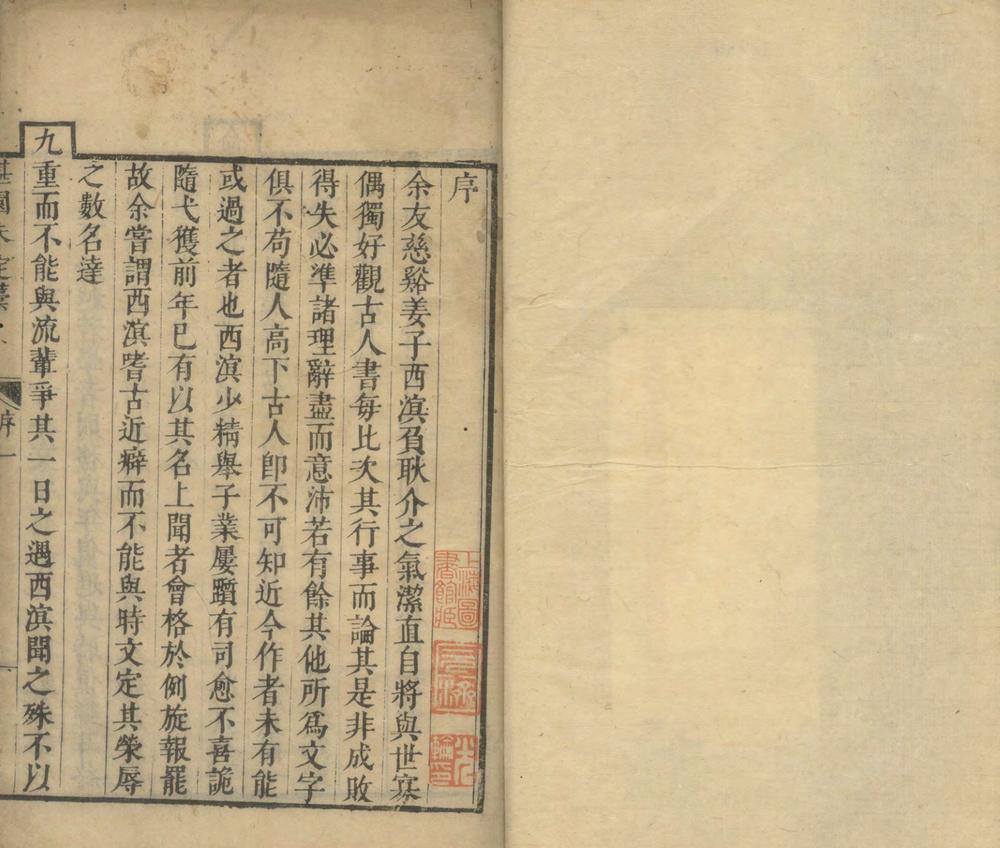 序
余友慈谿姜子西溟負耿介之氣潔直自將與世寡
偶獨好觀古人書每比次其行事而論其是非成敗
得失必準諸理辭盡而意沛若有餘其他所爲文字
俱不苟隨人高下古人卽不可知近今作者未有能
或過之者也西溟少精舉子業屢躓有司愈不喜詭
隨弋獲前年已有以其名上聞者會格於例旋報罷
故余嘗謂西溟嗜古近癖而不能與時文定其榮辱
之數名達
九重而不能與流輩爭其一日之遇西溟聞之殊不以
湛園未定藁
序一
上海圖書館藏